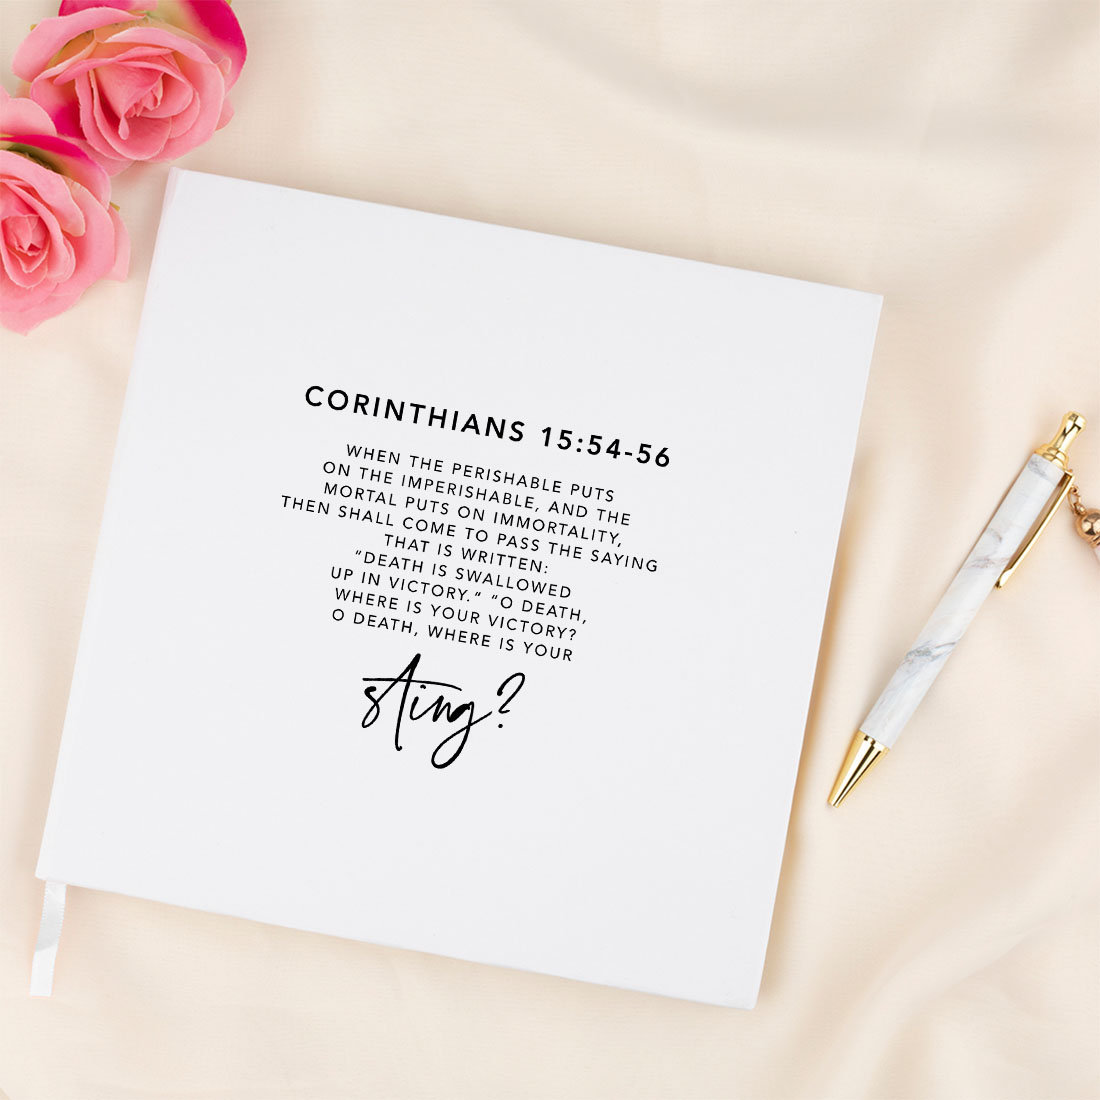 CORINTHIANS 15:54-56
WHEN THE PERISHABLE PUTS
ON THE IMPERISHABLE, AND THE
MORTAL PUTS ON IMMORTALITY,
THEN SHALL COME TO PASS THE SAYING
THAT IS WRITTEN:
“DEATH IS SWALLOWED
UP IN VICTORY.” “O DEATH,
WHERE IS YOUR VICTORY?
O DEATH, WHERE IS YOUR
sting?